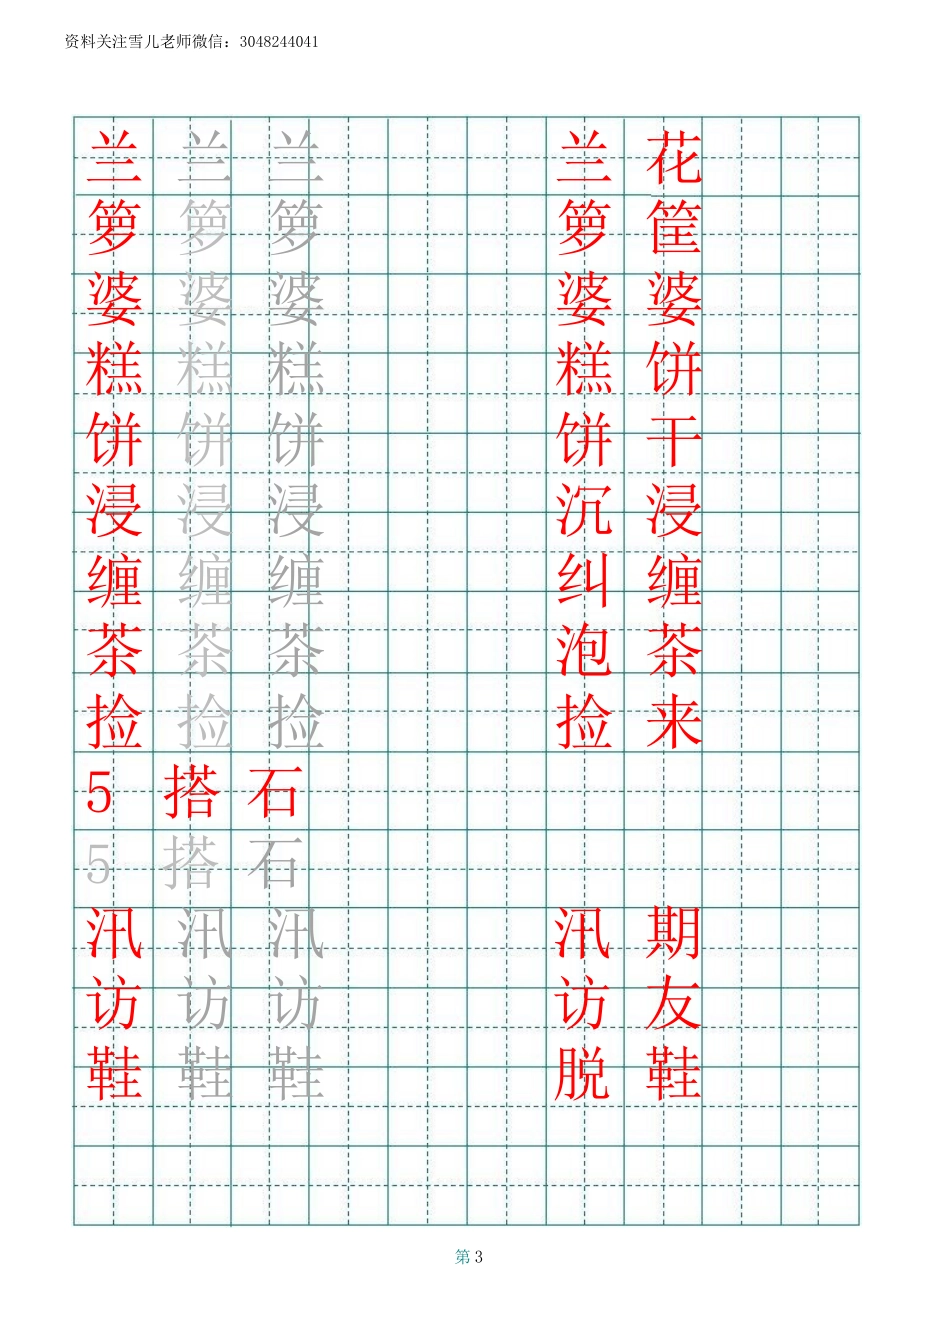 资料关注雪儿老师微信：3048244041
兰 兰 兰 兰 花
箩 箩 箩 箩 筐
婆 婆 婆 婆 婆
糕 糕 糕 糕 饼
饼 饼 饼 饼 干
浸 浸 浸 沉 浸
缠 缠 缠 纠 缠
茶 茶 茶 泡 茶
捡 捡 捡 捡 来
5 搭 石
5 搭 石
汛 汛 汛 汛 期
访 访 访 访 友
鞋 鞋 鞋 脱 鞋
第 3